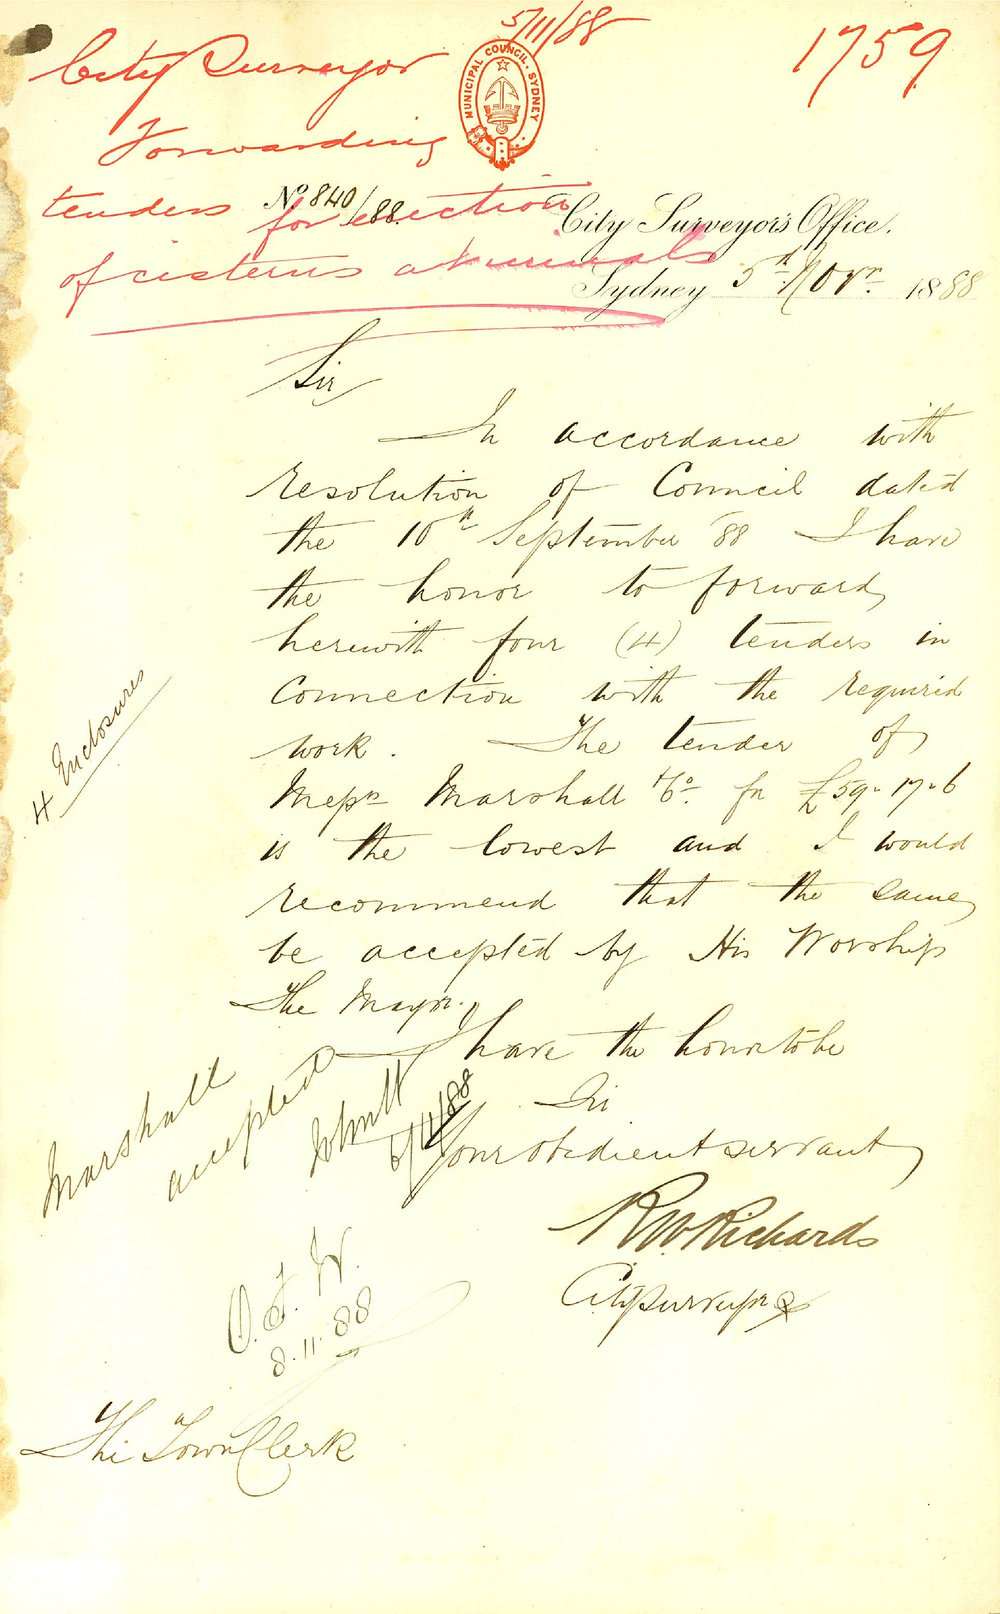 5/11/88
1759
City Surveyor
Forwarding
tenders for erection
of cisterns at urinals
MUNICIPAL COUNCIL. SYDNEY
No. 840/88.
City Surveyor's Office.
Sydney 5th Novr. 1888
Sir
In accordance with
resolution of Council dated
the 10th September '88 I have
the honor to forward
herewith four (4) tenders in
connection with the required
work. The tender of
Messrs Marshall & Co. for £59-17-6
is the lowest and I would
recommend that the same
be accepted by His Worship
The Mayor.
I have the honor to be
Sir
Your obedient servant
R W Richards
City Surveyor
4 Enclosures
Marshall
accepted
6/11/88
O. F. W.
8.11.88
The Town Clerk